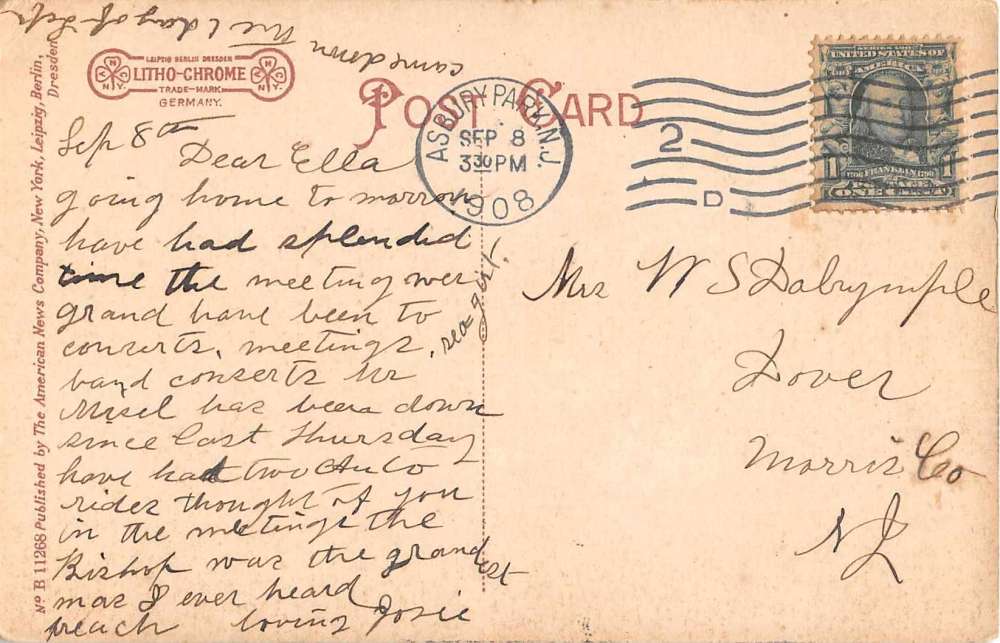 came down the 1 day of Sept
LEIPZIG BERLIN DRESDEN
LITHO-CHROME
TRADE-MARK
GERMANY.
POST CARD
Nº B 11268 Published by The American News Company, New York, Leipzig, Berlin,
Dresden
ASBURY PARK, N.J.
SEP 8
3 30 PM
1908
2
D
SERIES 1902
UNITED STATES OF
AMERICA
1 FRANKLIN 1
1706 1790
POSTAGE
ONE CENT
Sep 8th
Dear Ella
going home to morrow
have had splendid
time the meeting wer
grand have been to
conserts, meetings,
band conserts Mr
Misel has been down
since last Thursday
have had two Auto
rides thought of you
in the meetings the
Bishop was the grandest
man I ever heard
preach loving Josie
Mrs W S Dalrymple
Dover
Morris Co
NJ